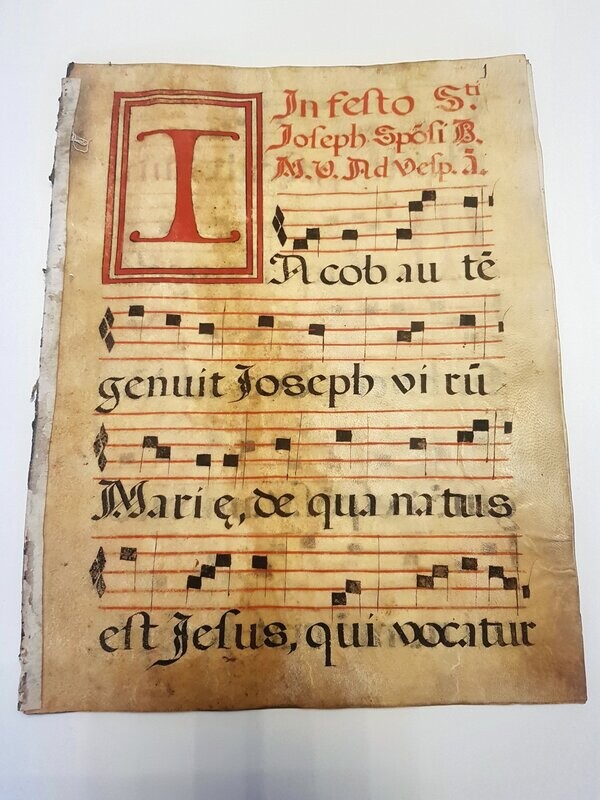 1
In festo S.ti
Joseph Spõsi B.
M. V. Ad Vesp. ã.
I
Acob au tẽ
genuit Joseph vi rũ
Mari ę, de qua natus
est Jesus, qui vocatur